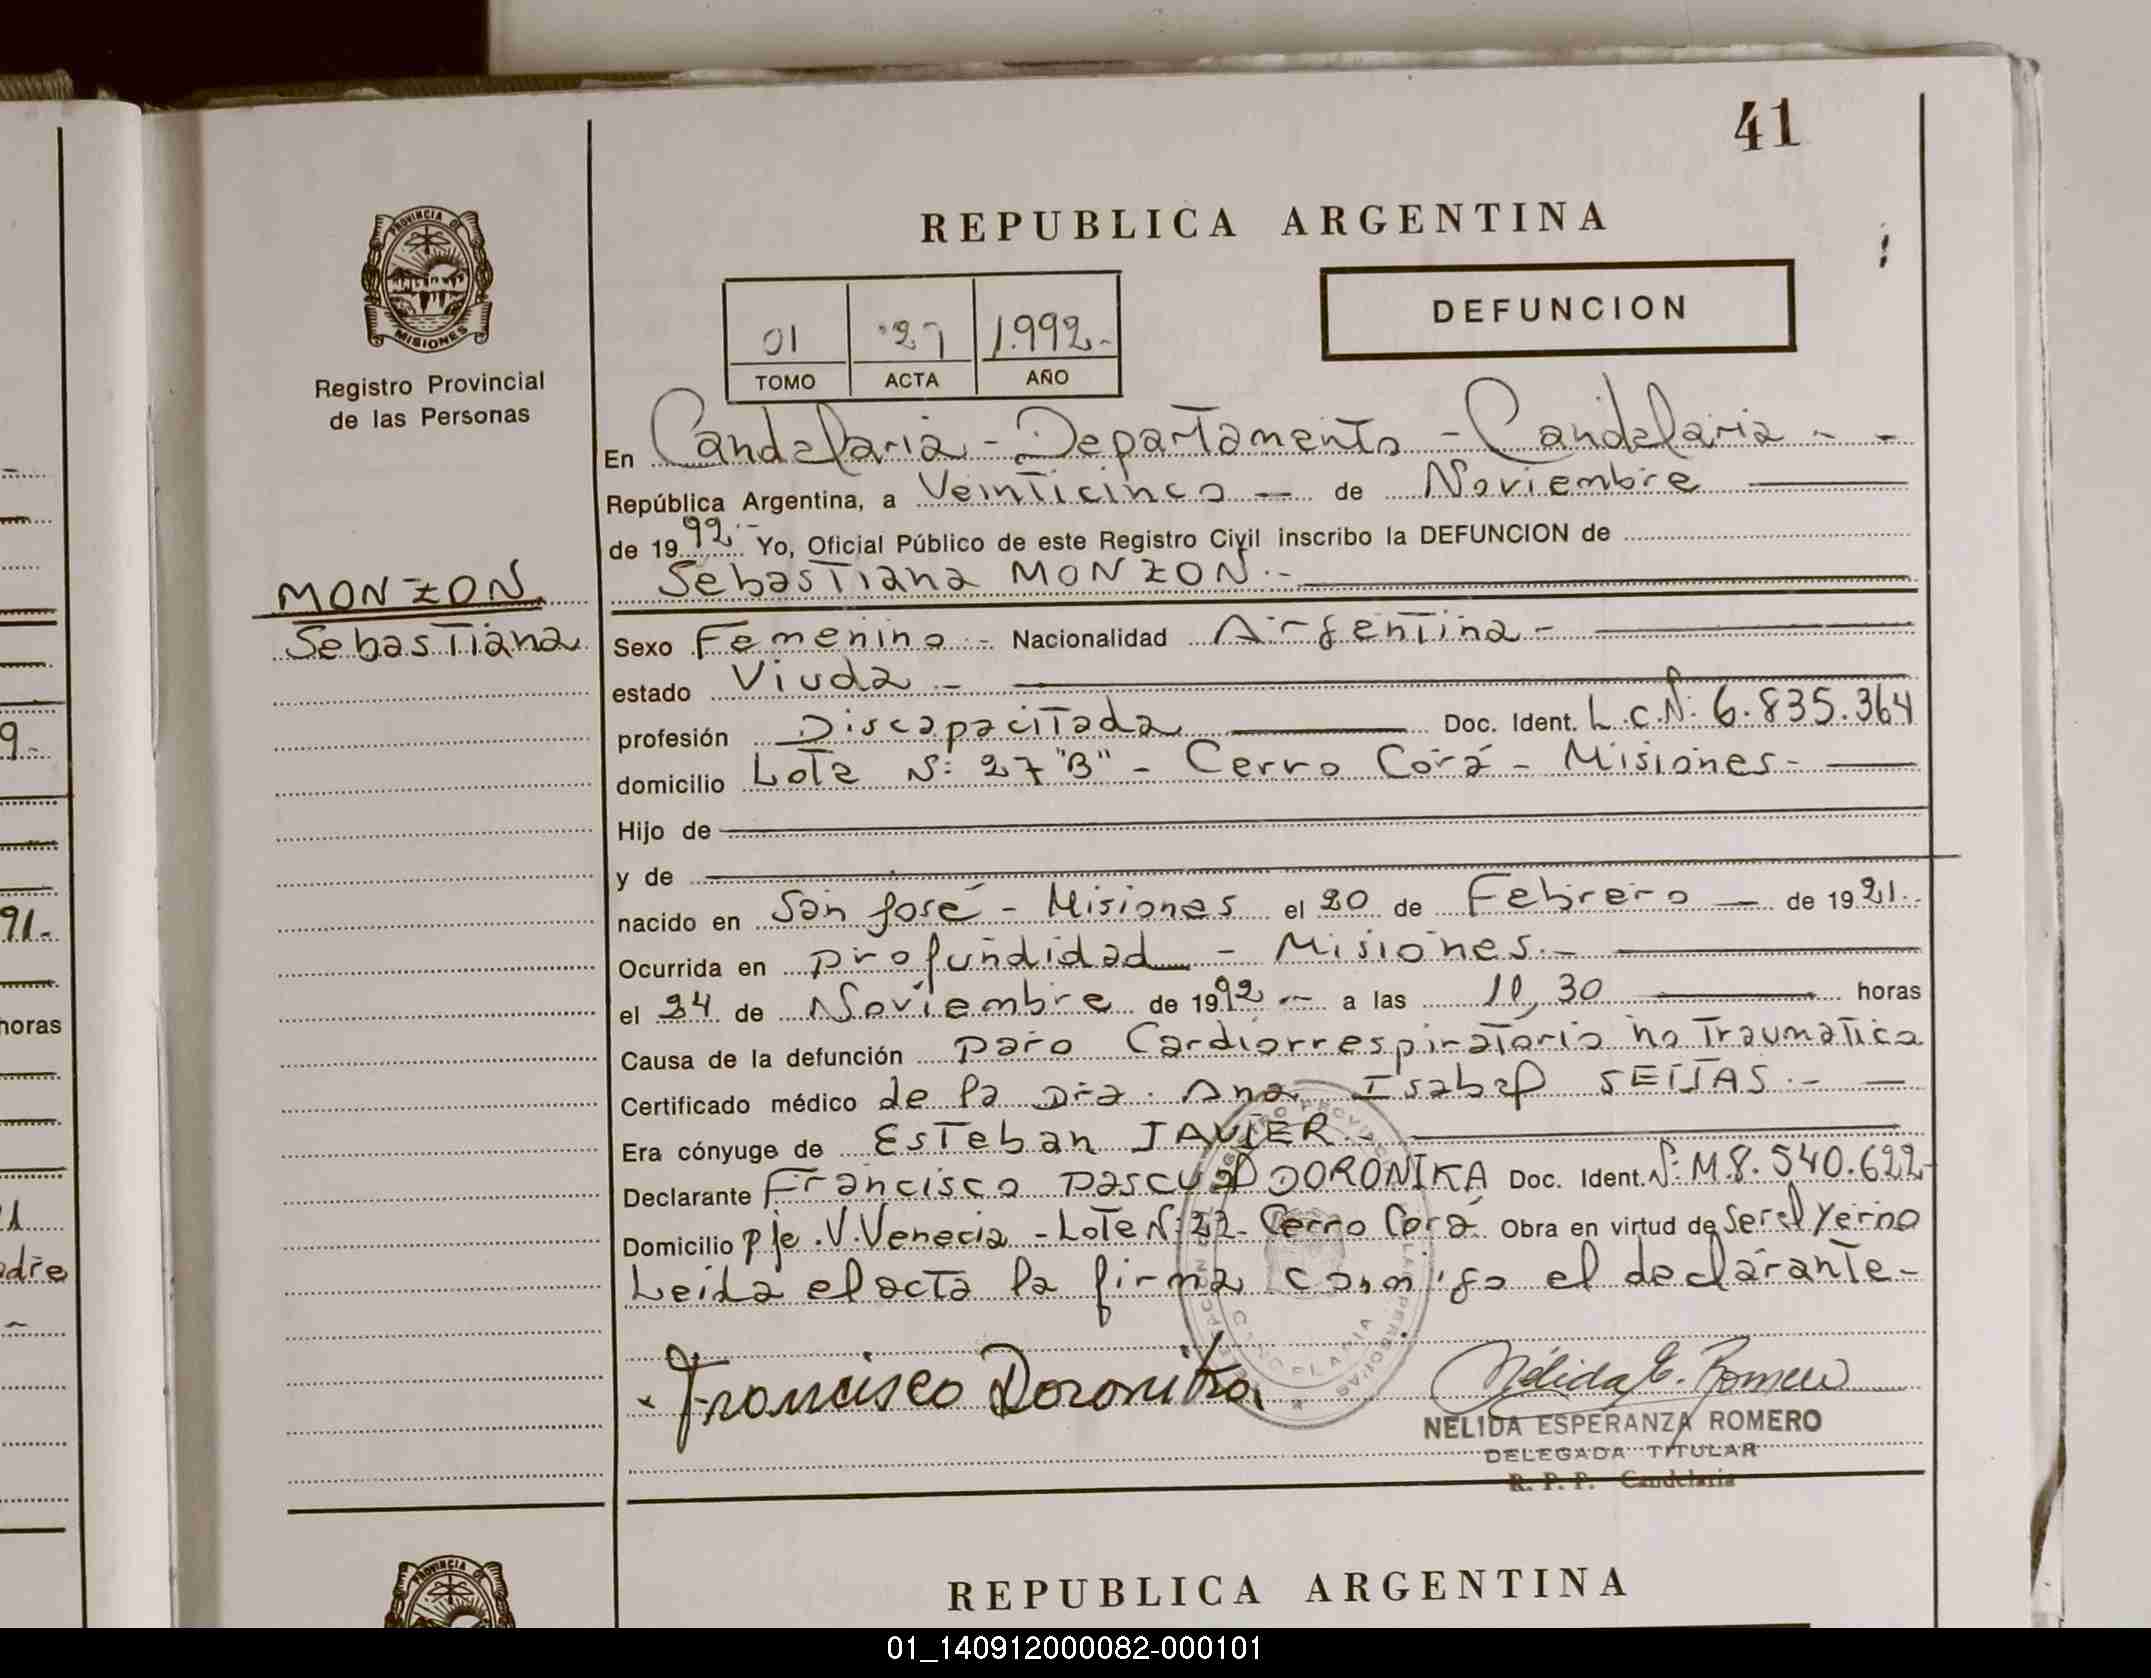 41
REPUBLICA ARGENTINA
PROVINCIA DE
MISIONES
Registro Provincial
de las Personas
DEFUNCION
01 27 1.992.-
TOMO ACTA AÑO
En Candelaria - Departamento - Candelaria - -
República Argentina, a Veinticinco — de Noviembre
de 1992.- Yo, Oficial Público de este Registro Civil inscribo la DEFUNCION de
Sebastiana MONZON.-
MONZON
Sebastiana
Sexo Femenino.- Nacionalidad Argentina-
estado Viuda.-
profesión Discapacitada Doc. Ident. L.C.Nº: 6.835.364
domicilio Lote Nº: 27 "B" - Cerro Corá - Misiones-
Hijo de
y de
nacido en San José - Misiones el 20 de Febrero — de 1921.-
Ocurrida en profundidad - Misiones.-
el 24 de Noviembre de 1992 - a las 11,30 horas
Causa de la defunción paro Cardiorrespiratorio no Traumatica
Certificado médico de la Dra. Ana Isabel SEIJAS.-
Era cónyuge de Esteban JAVIER.-
Declarante Francisco Pascual DORONIKA Doc. Ident. Nº: M.8.540.622-
Domicilio pje. V. Venecia - Lote Nº: 22 - Cerro Corá. Obra en virtud de Ser el Yerno
Leida el acta la firma conmigo el declarante-
Francisco Doronika
Nélida E. Romero
NELIDA ESPERANZA ROMERO
DELEGADA TITULAR
R. P. P. Candelaria
9-
91.-
horas
1
adre
PROVINCIA DE
REPUBLICA ARGENTINA
01_140912000082-000101